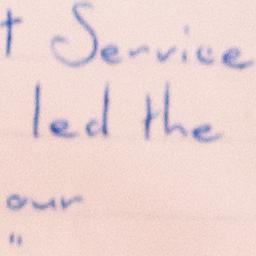 t Service
led the
our
"